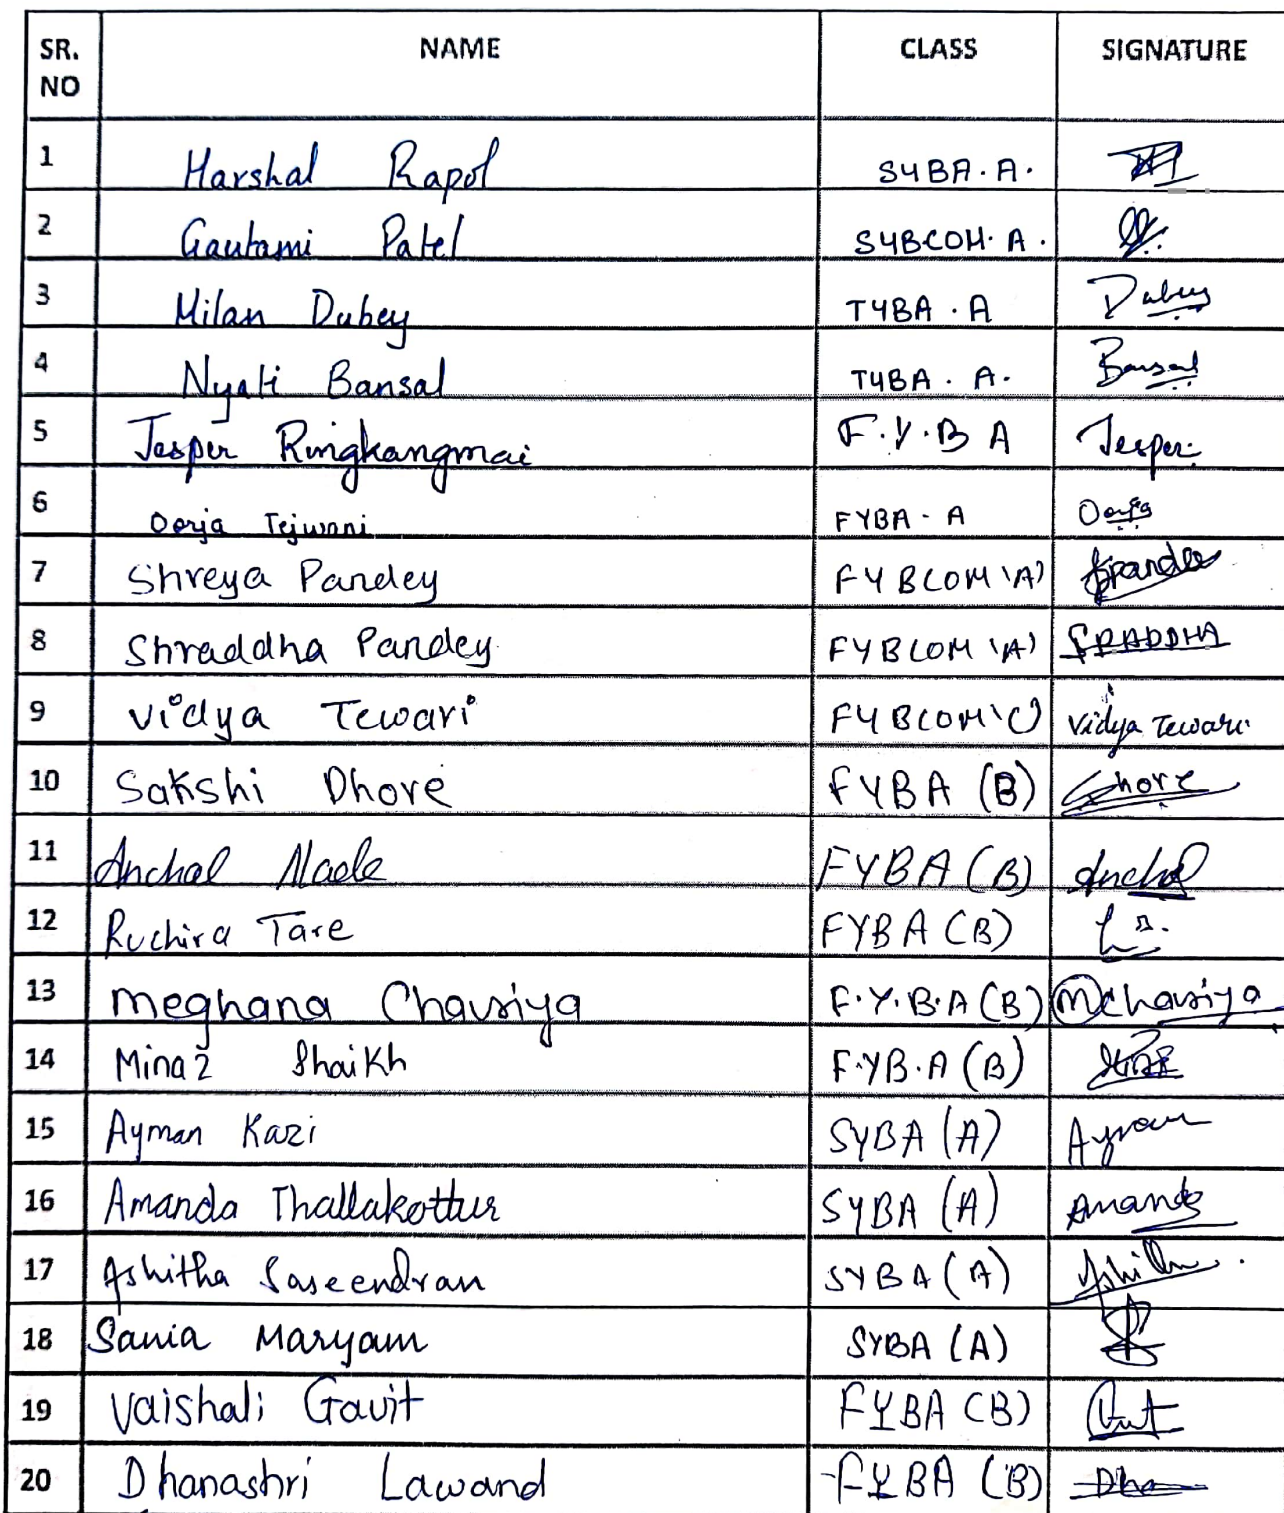 SR. NO NAME CLASS SIGNATURE
1 Harshal Rapol SYBA. A.
2 Gautami Patel SYBCOM. A.
3 Milan Dubey TYBA. A Dubey
4 Nyati Bansal TYBA. A. Bansal
5 Jesper Ringkangmai F.Y.B A Jesper
6 Oorja Tejwani FYBA - A Oorja
7 Shreya Pandey FYBCOM 'A'
8 Shraddha Pandey FYBCOM 'A' SRADDHA
9 Vidya Tewari FYBCOM 'C' Vidya Tewari
10 Sakshi Dhore FYBA (B) Dhore
11 Anchal FYBA (B) Anchal
12 Ruchira Tare FYBA (B)
13 Meghana Chavriya F.Y.B.A (B) MChavriya
14 Minaz Shaikh F.YB.A (B)
15 Ayman Kazi SYBA (A) Ayman
16 Amanda Thallakottur SYBA (A) Amanda
17 Ashitha Saseendran SYBA (A)
18 Sania Maryam SYBA (A)
19 Vaishali Gavit FYBA (B)
20 Dhanashri Lawand FYBA (B) Dha